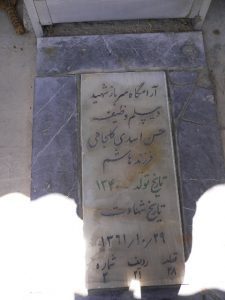 آرامگاه سرباز شهید
دیپلم وظیفه
حسن اسدی کلجاهی
فرزند هاشم
تاریخ تولد ۱۳۴۰
تاریخ شهادت
۱۳۶۱/۱۰/۲۹
قطعه ردیف شماره
۲۸ ۲۱ ۳